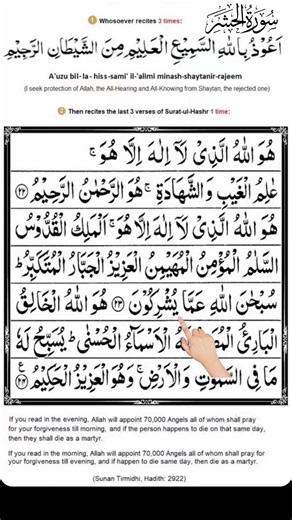 سُوْرَةُ الْحَشْرِ
1 Whosoever recites 3 times:
اَعُوْذُ بِاللّٰهِ السَّمِيْعِ الْعَلِيْمِ مِنَ الشَّيْطَانِ الرَّجِيْمِ
A'uzu bil-la-hiss-sami' il-'alimi minash-shaytanir-rajeem
(I seek protection of Allah, the All-Hearing and All-Knowing from Shaytan, the rejected one)
2 Then recites the last 3 verses of Surat-ul-Hashr 1 time:
هُوَ اللّٰهُ الَّذِىْ لَآ اِلٰهَ اِلَّا هُوَ ۚ
عٰلِمُ الْغَيْبِ وَالشَّهَادَةِ ۚ هُوَ الرَّحْمٰنُ الرَّحِيْمُ ﴿۲۲﴾
هُوَ اللّٰهُ الَّذِىْ لَآ اِلٰهَ اِلَّا هُوَ ۚ اَلْمَلِكُ الْقُدُّوْسُ
السَّلٰمُ الْمُؤْمِنُ الْمُهَيْمِنُ الْعَزِيْزُ الْجَبَّارُ الْمُتَكَبِّرُ ؕ
سُبْحٰنَ اللّٰهِ عَمَّا يُشْرِكُوْنَ ﴿۲۳﴾ هُوَ اللّٰهُ الْخَالِقُ
الْبَارِئُ لَهُ الْاَسْمَآءُ الْحُسْنٰى ؕ يُسَبِّحُ لَهٗ
مَا فِى السَّمٰوٰتِ وَالْاَرْضِ ۚ وَهُوَ الْعَزِيْزُ الْحَكِيْمُ ﴿۲۴﴾
If you read in the evening, Allah will appoint 70,000 Angels all of whom shall pray
for your forgiveness till evening, and if the person happens to die on that same day,
then they shall die as a martyr.
If you read in the morning, Allah will appoint 70,000 Angels all of whom shall pray for
your forgiveness till evening, and if happen to die same day, then die as a martyr.
(Sunan Tirmidhi, Hadith: 2922)